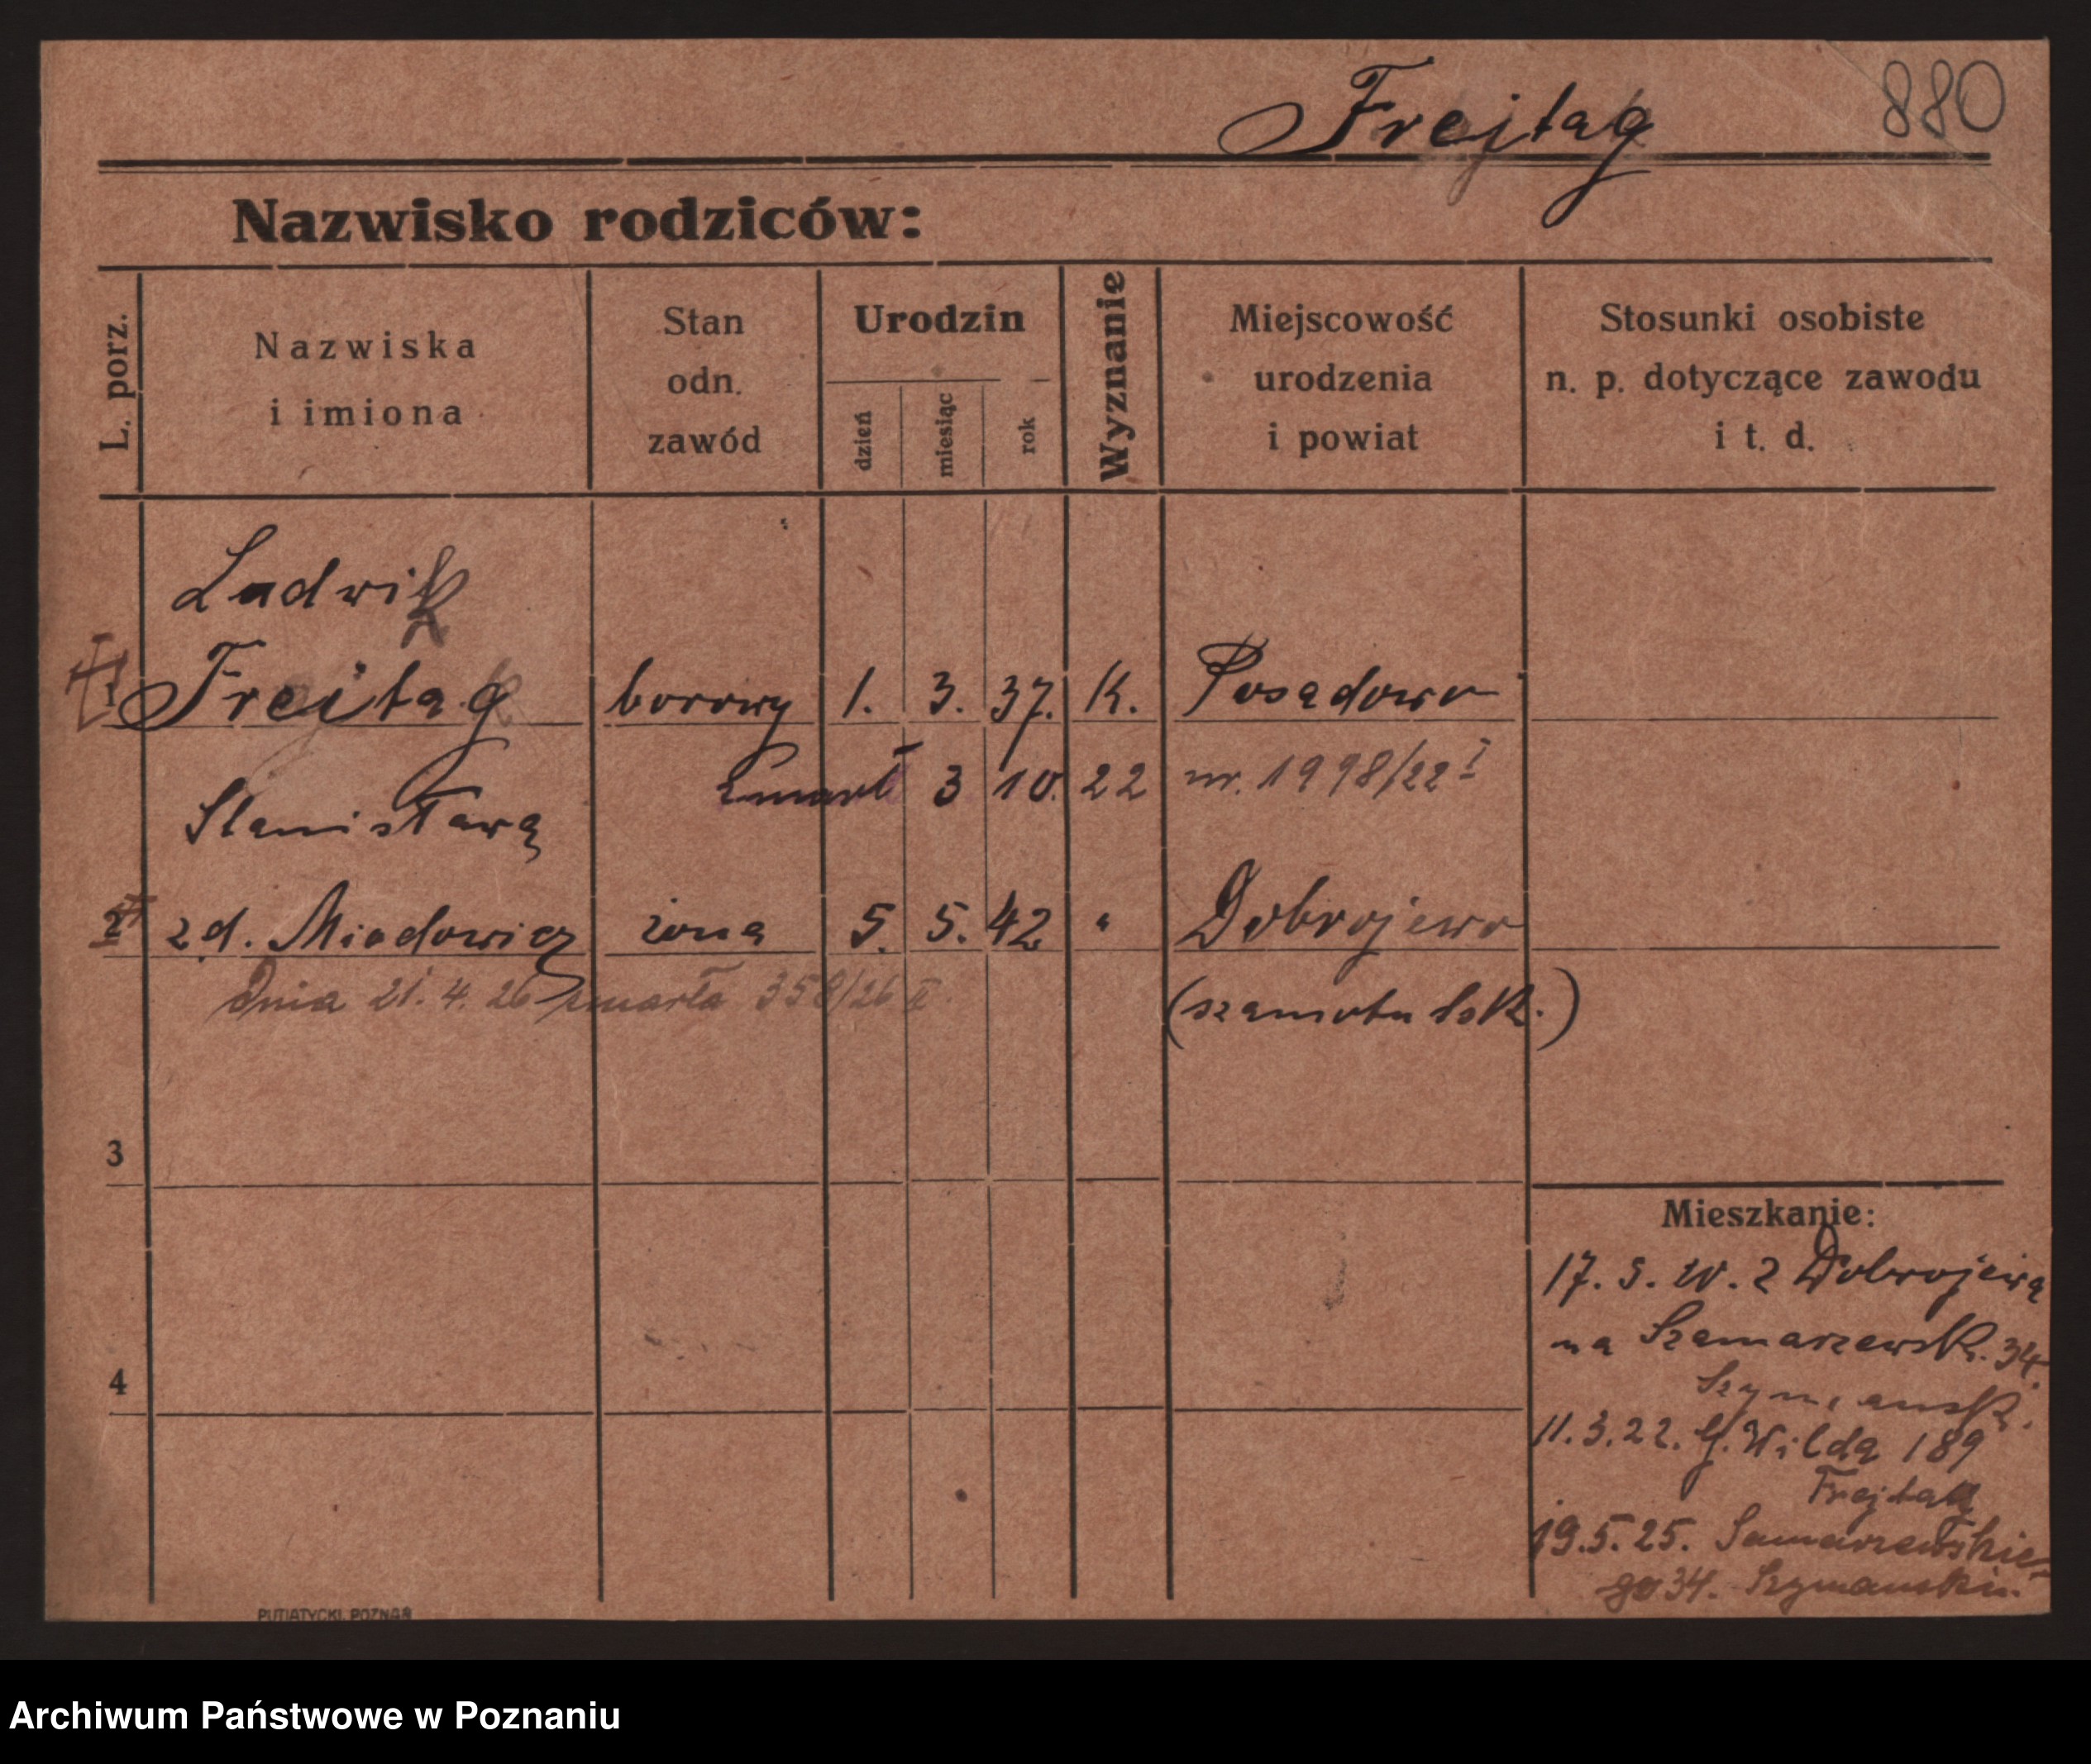 Frejtag 880
Nazwisko rodziców:
L. porz.
Nazwiska
i imiona
Stan
odn.
zawód
Urodzin
dzień
miesiąc
rok
Wyznanie
Miejscowość
urodzenia
i powiat
Stosunki osobiste
n. p. dotyczące zawodu
i t. d.
Ludwik
1 Frejtag borowy 1. 3. 37. K. Posadowo
zmarł 3 10. 22 nr. 1998/22 I
Stanisława
2 z d. Miadowicz żona 5. 5. 42 " Dobrojewo
dnia 21. 4. 26 zmarła 358/26 II
(szamotulsk.)
3
Mieszkanie:
17. 5. 20. z Dobrojewa
na Szamarzewsk. 34.
4
11. 3. 22. G. Wilda 189
Frejtag
19. 5. 25. Samarzewskie-
go 34. Szymanski
PUTIATYCKI, POZNAŃ
Archiwum Państwowe w Poznaniu